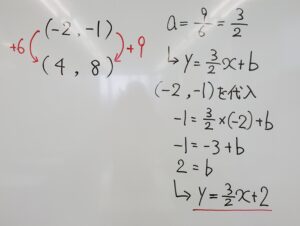 (-2, -1)
+6 +9
(4, 8)
a = 9/6 = 3/2
↳ y = 3/2 x + b
(-2, -1)を代入
-1 = 3/2 × (-2) + b
-1 = -3 + b
2 = b
↳ y = 3/2 x + 2